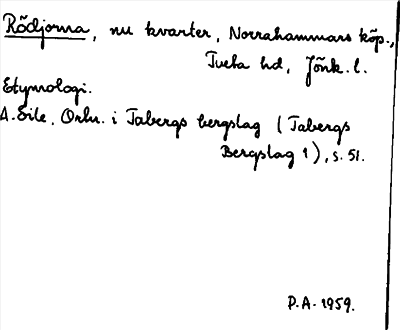 Rödjorna, nu kvarter, Norrahammars köp.,
Tveta hd, Jönk. l.
Etymologi.
A. Eile, Ortn. i Tabergs bergslag (Tabergs
Bergslag 1), s. 51.
P.A. 1959.